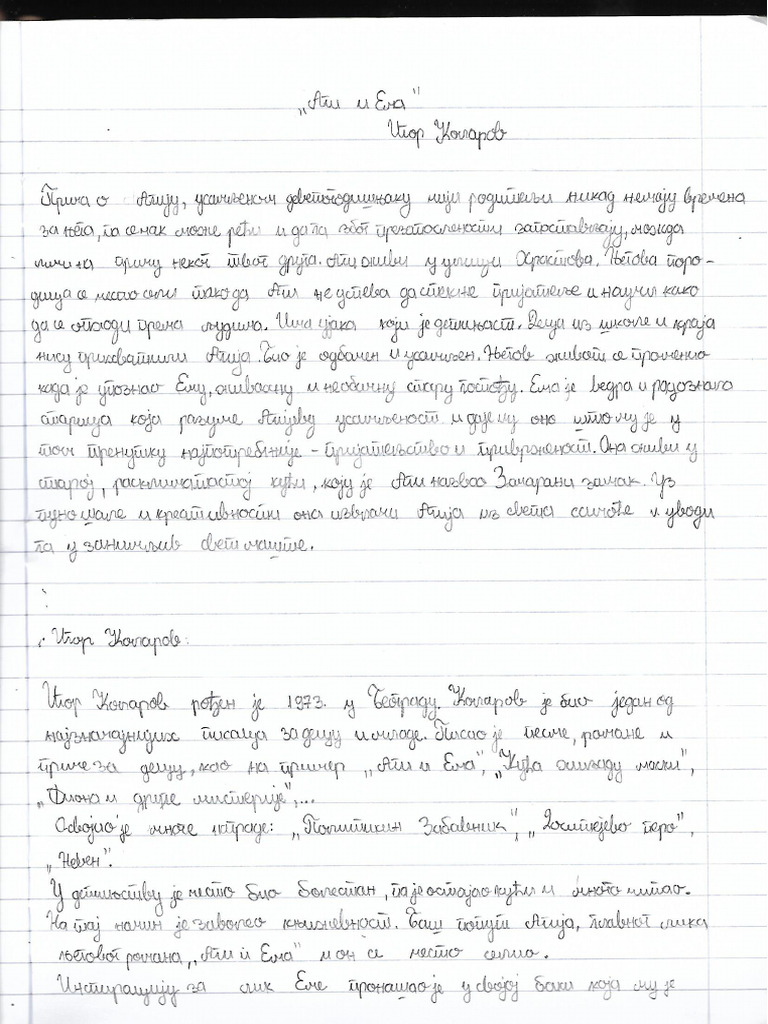 „Аги и Ема"
Игор Коларов
Прича о Агију, усамљеном деветогодишњаку чији родитељи никад немају времена
за њега, па се чак може рећи и да га због презапослености запостављају, можда
личи на причу неког твог друга. Аги живи у улици Храстова. Његова поро-
дица се често сели тако да Аги не успева да стекне пријатеље и научи како
да се опходи према људима. Има ујака који је детињаст. Деца из школе и краја
нису прихватили Агија. Био је одбачен и усамљен. Његов живот се променио
када је упознао Ему, живахну и необичну стару госпођу. Ема је ведра и радознала
старица која разуме Агијеву усамљеност и даје му оно што му је у
том тренутку најпотребније - пријатељство и приврженост. Она живи у
старој, расклиматаној кући, коју је Аги назвао Зачарани замак. Уз
пуно шале и креативности она извлачи Агија из света самоће и уводи
га у занимљив свет маште.
Игор Коларов:
Игор Коларов рођен је 1973. у Београду. Коларов је био један од
најзначајнијих писаца за децу и младе. Писао је песме, романе и
приче за децу, као на пример „Аги и Ема", „Кућа хиљаду маски",
„Дванаест мистерије",...
Освојио је многе награде: „Политикин Забавник", „Доситејево перо",
„Невен".
У детињству је често био болестан, па је остајао кући и много читао.
На тај начин је заволео књижевност. Баш попут Агија, главног лика
његовог романа „Аги и Ема" и он се често селио.
Инспирацију за лик Еме пронашао је у својој баки која му је